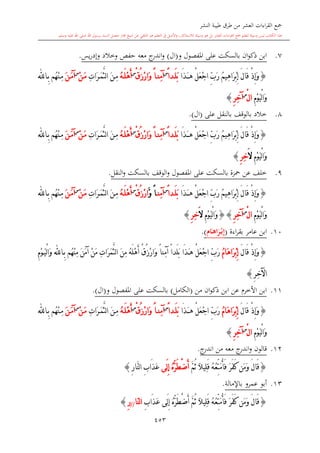 جمع القراءات العشر من طرق طيبة النشر
٧. ابن ذكوان بالسكت على المفصول و(ال) واندرج معه حفص وخلاد وإدريس.
﴿ وَإِذْ قَالَ إِبْرَاهِيمُ رَبِّ اجْعَلْ هَـٰذَا بَلَدًا آمِنًا وَارْزُقْ أَهْلَهُ مِنَ الثَّمَرَاتِ مَنْ آمَنَ مِنْهُم بِاللَّهِ
وَالْيَوْمِ الْآخِرِ ﴾
٨. خلاد بالوقف بالنقل على (ال).
﴿ وَإِذْ قَالَ إِبْرَاهِيمُ رَبِّ اجْعَلْ هَـٰذَا بَلَدًا آمِنًا وَارْزُقْ أَهْلَهُ مِنَ الثَّمَرَاتِ مَنْ آمَنَ مِنْهُم بِاللَّهِ
وَالْيَوْمِ الَاخِرِ ﴾
٩. خلف عن حمزة بالسكت على المفصول والوقف بالسكت والنقل.
﴿ وَإِذْ قَالَ إِبْرَاهِيمُ رَبِّ اجْعَلْ هَـٰذَا بَلَدًا آمِنًا وَارْزُقْ أَهْلَهُ مِنَ الثَّمَرَاتِ مَنْ آمَنَ مِنْهُم بِاللَّهِ
وَالْيَوْمِ الْآخِرِ ﴾ ﴿ وَالْيَوْمِ الَاخِرِ ﴾
١٠. ابن عامر بقراءة (إِبْرَاهَامُ).
﴿ وَإِذْ قَالَ إِبْرَاهَامُ رَبِّ اجْعَلْ هَـٰذَا بَلَدًا آمِنًا وَارْزُقْ أَهْلَهُ مِنَ الثَّمَرَاتِ مَنْ آمَنَ مِنْهُم بِاللَّهِ وَالْيَوْمِ
الْآخِرِ ﴾
١١. ابن الأخرم عن ابن ذكوان من (الكامل) بالسكت على المفصول و(ال).
﴿ وَإِذْ قَالَ إِبْرَاهَامُ رَبِّ اجْعَلْ هَـٰذَا بَلَدًا آمِنًا وَارْزُقْ أَهْلَهُ مِنَ الثَّمَرَاتِ مَنْ آمَنَ مِنْهُم بِاللَّهِ
وَالْيَوْمِ الْآخِرِ ﴾
١٢. قالون واندرج معه من اندرج.
﴿ قَالَ وَمَن كَفَرَ فَأُمَتِّعُهُ قَلِيلًا ثُمَّ أَضْطَرُّهُ إِلَىٰ عَذَابِ النَّارِ ﴾
١٣. أبو عمرو بالإمالة.
﴿ قَالَ وَمَن كَفَرَ فَأُمَتِّعُهُ قَلِيلًا ثُمَّ أَضْطَرُّهُ إِلَىٰ عَذَابِ النَّارِ ﴾
٤٥٣